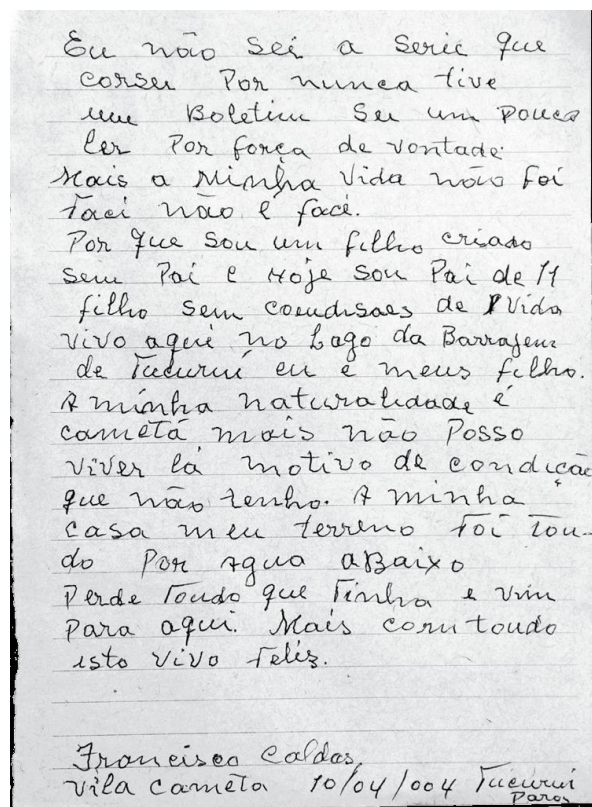 Eu não sei a serie que
corsei Por nunca tive
um Boletim Sei um pouco
ler Por força de vontade
Mais a Minha vida não foi
facé não é facé.
Por que sou um filho criado
sem Pai e Hoje sou Pai de 11
filho sem comdisoes de Vida
vivo aqui no Lago da Barragem
de Tucuruí eu e meus filho.
A minha naturalidade é
cametá mais não Posso
viver lá motivo de condição
que não tenho. A minha
casa meu terreno foi tou-
do Por agua aBaixo
Perde toudo que tinha e vim
Para aqui. Mais com toudo
isto vivo feliz.
Francisco Caldas
Vila cameta 10/04/004 Tucuruí
Para